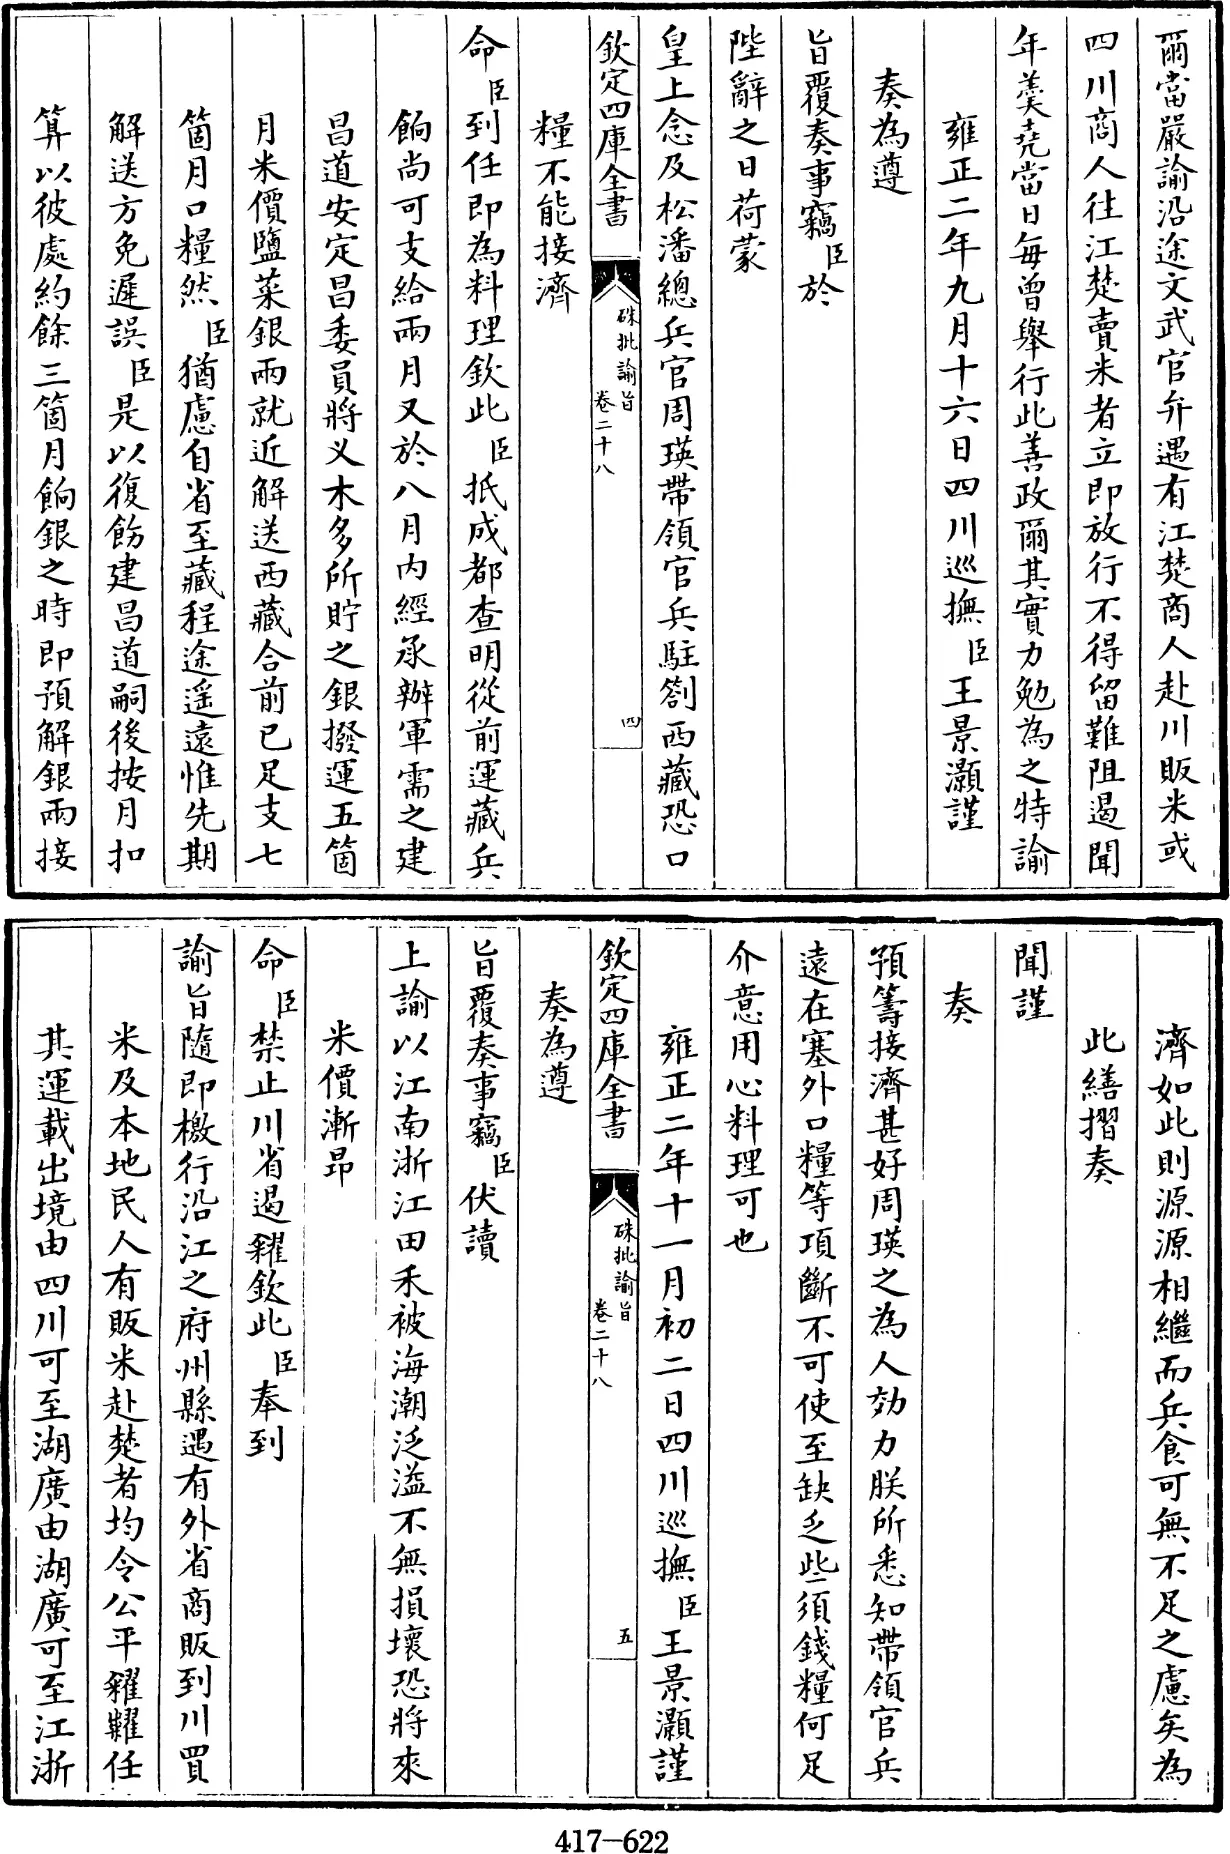 爾當嚴諭沿途文武官弁遇有江楚商人赴川販米或
四川商人往江楚賣米者立即放行不得留難阻遏聞
年羹堯當日每曾舉行此善政爾其實力勉為之特諭
雍正二年九月十六日四川巡撫臣王景灝謹
奏為遵
旨覆奏事竊臣於
陛辭之日荷蒙
皇上念及松潘總兵官周瑛帶領官兵駐劄西藏恐口
欽定四庫全書
硃批諭旨
卷二十八
四
糧不能接濟
命臣到任即為料理欽此臣抵成都查明從前運藏兵
餉尚可支給兩月又於八月内經承辦軍需之建
昌道安定昌委員將义木多所貯之銀撥運五箇
月米價鹽菜銀兩就近解送西藏合前已足支七
箇月口糧然臣猶慮自省至藏程途遥遠惟先期
解送方免遲誤臣是以復飭建昌道嗣後按月扣
算以彼處約餘三箇月餉銀之時即預解銀兩接
濟如此則源源相繼而兵食可無不足之慮矣為
此繕摺奏
聞謹
奏
預籌接濟甚好周瑛之為人効力朕所悉知帶領官兵
遠在塞外口糧等項斷不可使至缺乏些須錢糧何足
介意用心料理可也
雍正二年十一月初二日四川巡撫臣王景灝謹
欽定四庫全書
硃批諭旨
卷二十八
五
奏為遵
旨覆奏事竊臣伏讀
上諭以江南浙江田禾被海潮泛溢不無損壞恐將來
米價漸昂
命臣禁止川省遏糴欽此臣奉到
諭旨隨即檄行沿江之府州縣遇有外省商販到川買
米及本地民人有販米赴楚者均令公平糴糶任
其運載出境由四川可至湖廣由湖廣可至江浙
417-622